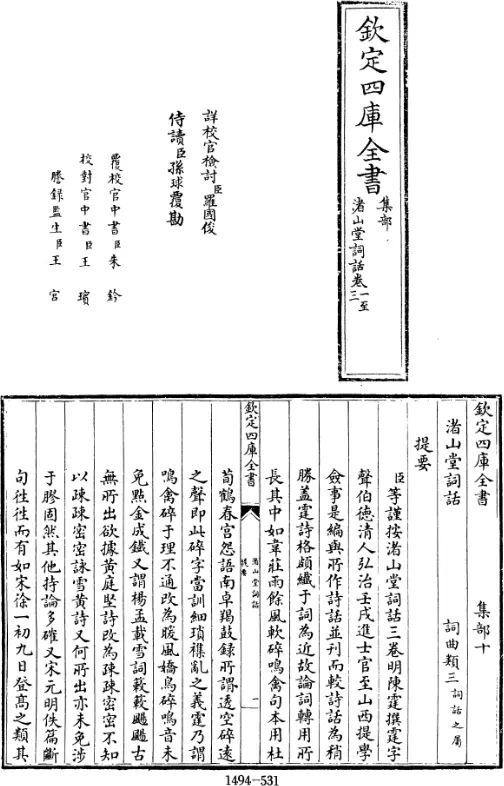 欽定四庫全書
集部
渚山堂詞話卷一至三
詳校官檢討臣羅國俊
侍讀臣孫球覆勘
覆校官中書臣朱鈐
校對官中書臣王璸
謄錄監生臣王宮
欽定四庫全書 集部十
渚山堂詞話 詞曲類三詞話之屬
提要
臣等謹按渚山堂詞話三卷明陳霆撰霆字
聲伯德清人弘治壬戌進士官至山西提學
僉事是編與所作詩話並刊而較詩話為稍
勝蓋霆詩格頗纎于詞為近故論詞轉用所
長其中如韋莊雨餘風軟碎鳴禽句本用杜
欽定四庫全書
渚山堂詞話
提要
一
荀鶴春宫怨語南卓羯鼓録所謂透空碎遠
之聲即此碎字當訓細瑣襍亂之義霆乃謂
鳴禽碎于理不通改為暖風嬌鳥碎鳴音未
免點金成鐵又謂楊孟載雪詞簌簌颺颺古
無所出欲據黄庭堅詩改為疎疎密密不知
以疎疎密密詠雪黄詩又何所出亦未免涉
于膠固然其他持論多確又宋元明佚篇斷
句徃徃而有如宋徐一初九日登髙之類其
1494-531